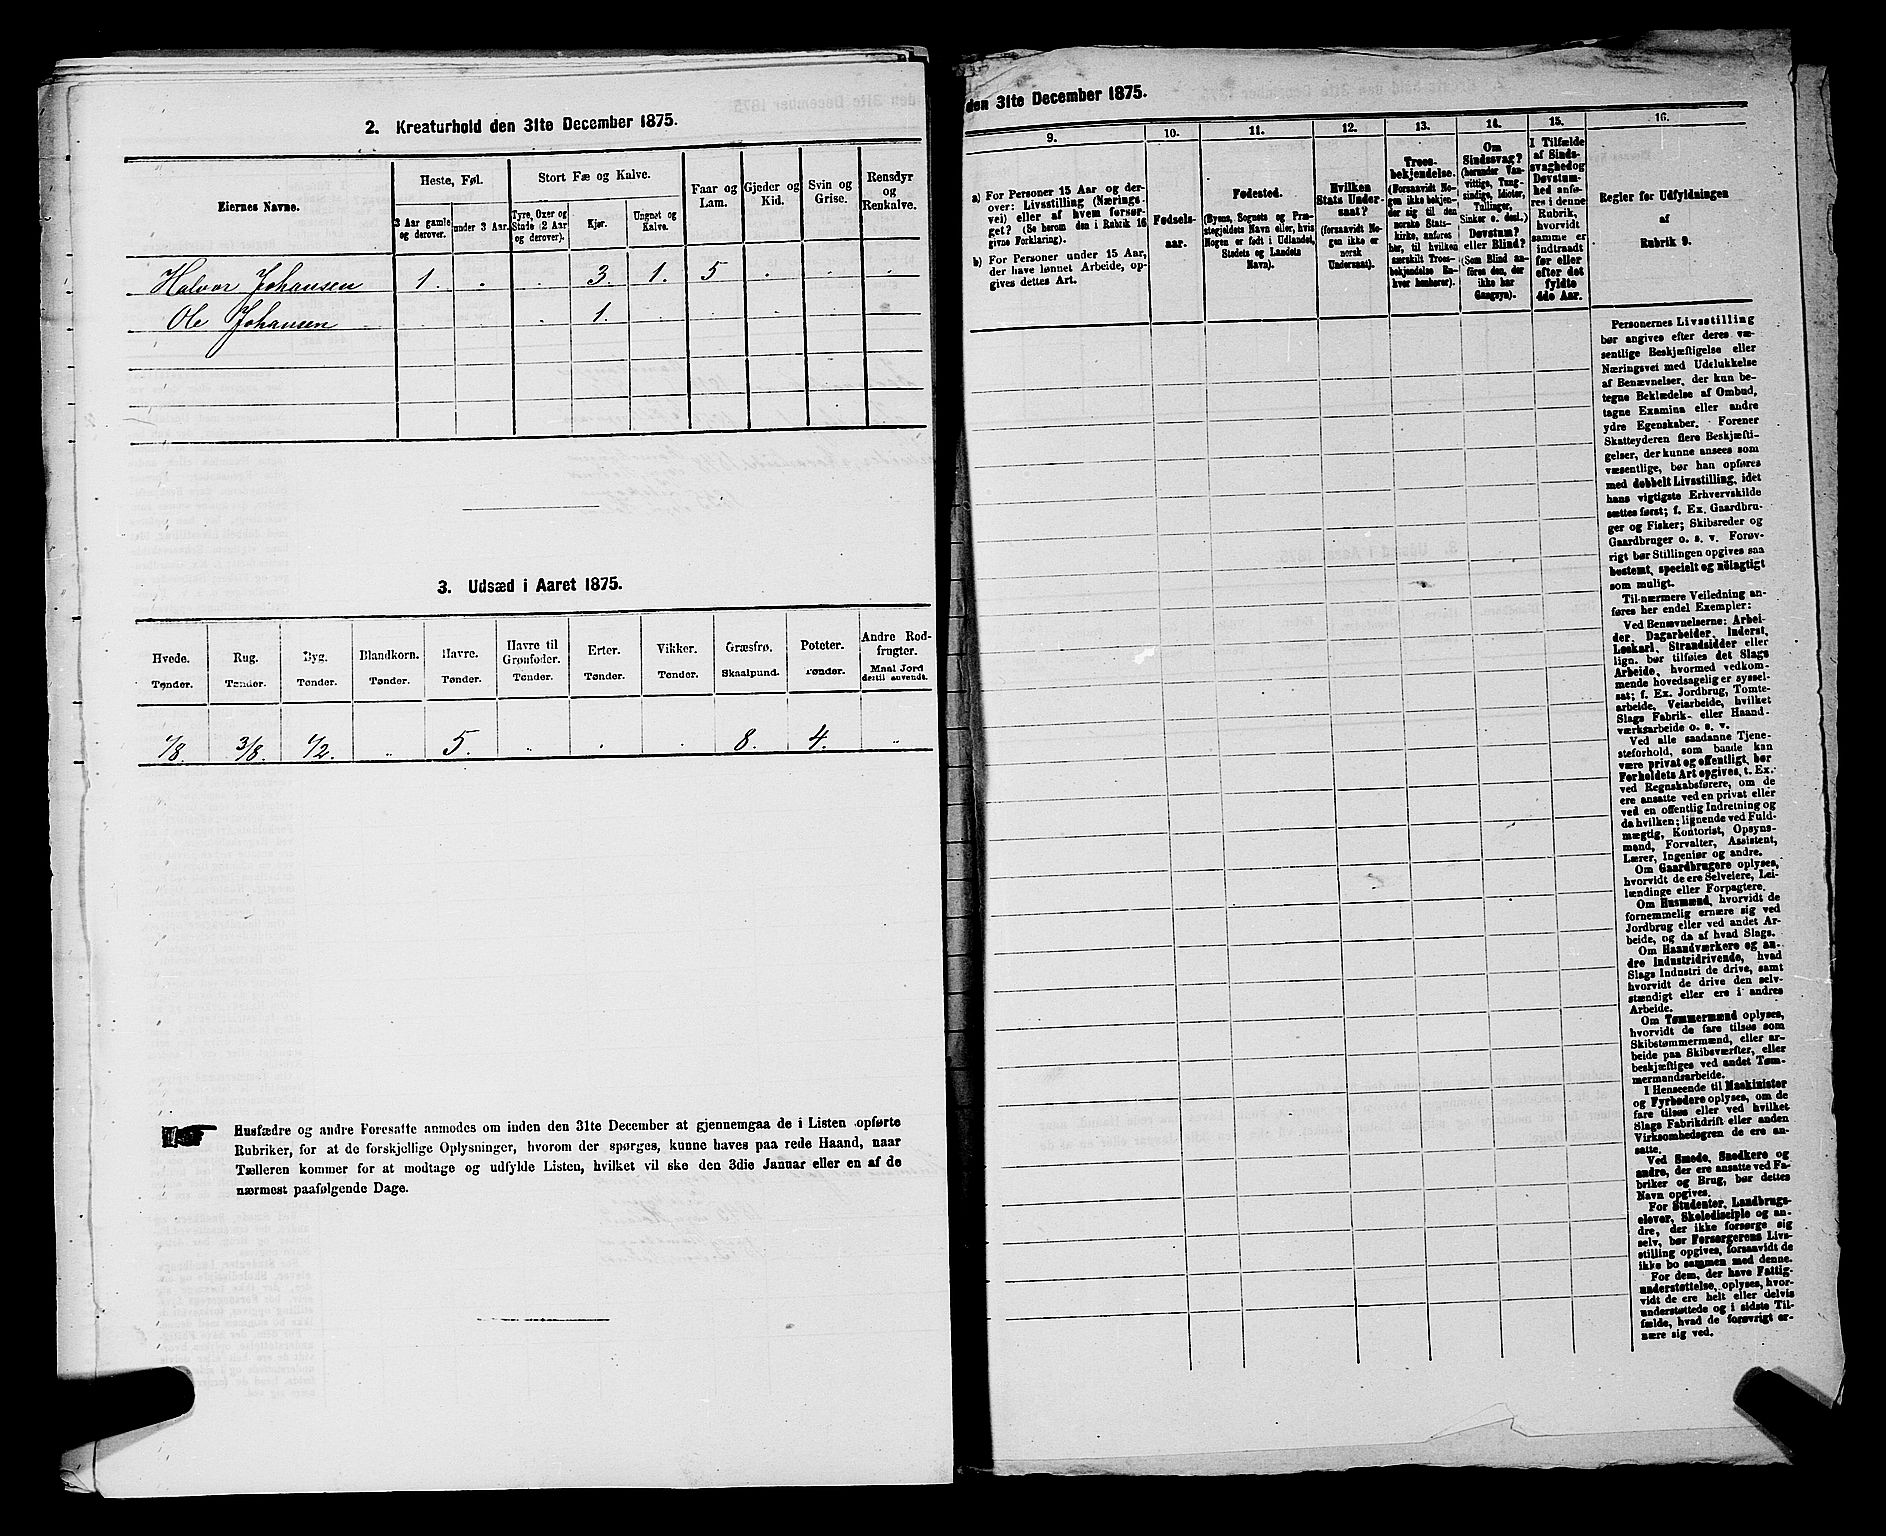 2. Kreaturhold den 31te December 1875.
Eiernes Navne.
Heste, Føl.
Stort Fæ og Kalve.
Faar og Lam.
Gjeder og Kid.
Svin og Grise.
Rensdyr og Renkalve.
3 Aar gamle og derover.
under 3 Aar.
Tyre, Oxer og Stude (2 Aar og derover).
Kjør.
Ungnøt og Kalve.
Halvor Johansen 1. . . 3. 1. 5 . . .
Ole Johansen . 1.
3. Udsæd i Aaret 1875.
Hvede. Tønder.
Rug. Tønder.
Byg. Tønder.
Blandkorn. Tønder.
Havre. Tønder.
Havre til Grønfoder. Tønder.
Erter. Tønder.
Vikker. Tønder.
Græsfrø. Skaalpund.
Poteter. Tønder.
Andre Rodfrugter. Maal Jord dertil anvendt.
1/8. 3/8. 1/2. " 5. " . . 8. 4. "
Husfædre og andre Foresatte anmodes om inden den 31te December at gjennemgaa de i Listen opførte
Rubriker, for at de forskjellige Oplysninger, hvorom der spørges, kunne haves paa rede Haand, naar
Tælleren kommer for at modtage og udfylde Listen, hvilket vil ske den 3die Januar eller en af de
nærmest paafølgende Dage.
den 31te December 1875.
9.
a) For Personer 15 Aar og derover: Livsstilling (Næringsvei) eller af hvem forsørget? (Se herom den i Rubrik 16 givne Forklaring).
b) For Personer under 15 Aar, der have lønnet Arbeide, opgives dettes Art.
10.
Fødselsaar.
11.
Fødested.
(Byens, Sognets og Præstegjeldets Navn eller, hvis Nogen er født i Udlandet, Stedets og Landets Navn).
12.
Hvilken Stats Undersaat?
(forsaavidt Nogen ikke er norsk Undersaat).
13.
Troesbekjendelse.
(Forsaavidt Nogen ikke bekjender sig til den norske Statskirke, anføres her, til hvilken særskilt Troesbekjendelse Enhver henhører).
14.
Om Sindssvag?
(herunder Vanvittige, Tungsindige, Idioter, Tullinger, Sinker o. desl.)
Døvstum?
eller Blind?
(Som Blind anføres den, der ikke har Gangsyn).
15.
I Tilfælde af Sindssvaghed og Døvstumhed anføres i denne Rubrik, hvorvidt samme er indtraadt før eller efter det fyldte 4de Aar.
16.
Regler for Udfyldningen
af
Rubrik 9.
Personernes Livsstilling
bør angives efter deres væ-
sentlige Beskjæftigelse eller
Næringsvei med Udelukkelse
af Benævnelser, der kun be-
tegne Beklædelse af Ombud,
tagne Examina eller andre
ydre Egenskaber. Forener
Skatteyderen flere Beskjæfti-
gelser, der kunne ansees som
væsentlige, bør han opføres
med dobbelt Livsstilling, idet
hans vigtigste Erhvervskilde
sættes først; f. Ex. Gaardbru-
ger og Fisker; Skibsreder og
Gaardbruger o. s. v. Forøv-
rigt bør Stillingen opgives saa
bestemt, specielt og nöiagtigt
som muligt.
Til nærmere Veiledning an-
føres her endel Exempler:
Ved Benævnelserne: Arbei-
der, Dagarbeider, Inderst,
Løskarl, Strandsidder eller
lign. bør tilføies det Slags
Arbeide, hvormed vedkom-
mende hovedsagelig er syssel-
sat; f. Ex. Jordbrug, Tomte-
arbeide, Veiarbeide, hvilket
Slags Fabrik- eller Haand-
værksarbeide o. s. v.
Ved alle saadanne Tjene-
steforhold, som baade kan
være privat og offentligt, bør
Forholdets Art opgives, t. Ex.
ved Regnskabsførere, om de
ere ansatte ved en privat eller
ved en offentlig Indretning og
da hvilken; lignende ved Fuld-
mægtig, Kontorist, Opsyns-
mand, Forvalter, Assistent,
Lærer, Ingeniør og andre.
Om Gaardbrugere oplyses,
hvorvidt de ere Selveiere, Lei-
lændinge eller Forpagtere.
Om Husmænd, hvorvidt de
fornemmelig ernære sig ved
Jordbrug eller ved andet Ar-
beide, og da af hvad Slags.
Om Haandværkere og an-
dre Industridrivende, hvad
Slags Industri de drive, samt
hvorvidt de drive den selv-
stændigt eller ere i andres
Arbeide.
Om Tømmermænd oplyses,
hvorvidt de fare tilsøs som
Skibstømmermænd, eller ar-
beide paa Skibsværfter, eller
beskjæftiges ved andet Tøm-
mermandsarbeide.
I Henseende til Maskinister
og Fyrbødere oplyses, om de
fare tilsøs eller ved hvilket
Slags Fabrikdrift eller anden
Virksomhedsgren de ere an-
satte.
Ved Smede, Snedkere og
andre, der ere ansatte ved Fa-
briker og Brug, bør dettes
Navn opgives.
For Studenter, Landbrugs-
elever, Skoledisciple og an-
dre, der ikke forsørge sig
selv, bør Forsørgerens Livs-
stilling opgives, forsaavidt de
ikke bo sammen med denne.
For dem, der have Fattig-
understøttelse, oplyses, hvor-
vidt de ere helt eller delvis
understøttede og i sidste Til-
fælde, hvad de forøvrigt er-
nære sig ved.